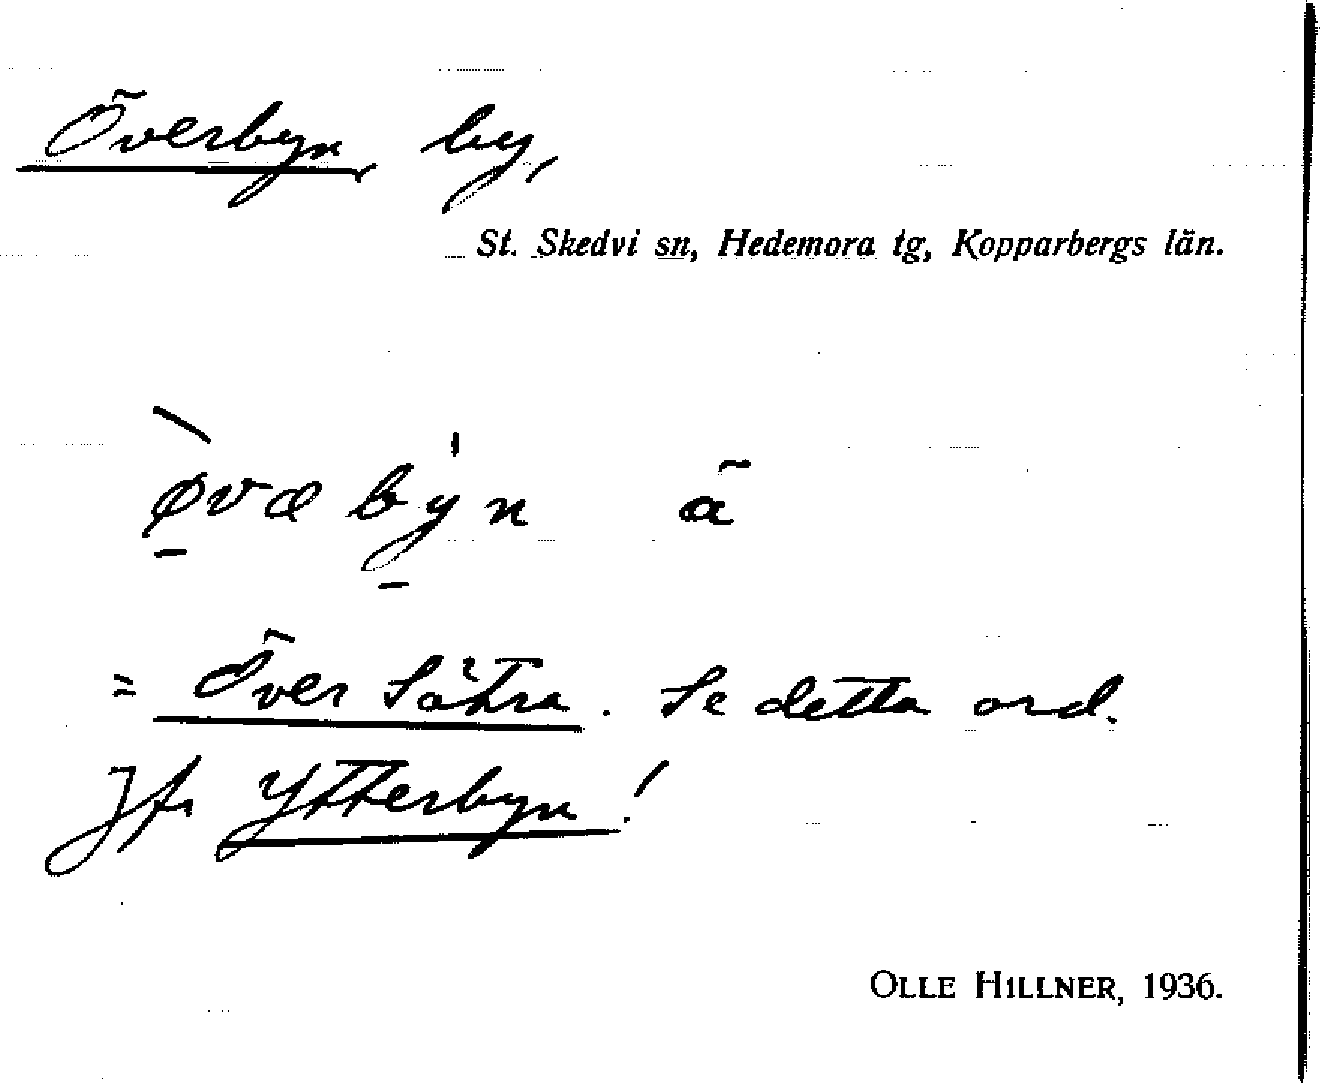 Överbyn, by,
St. Skedvi sn, Hedemora tg, Kopparbergs län.
øvæ býn ā
= Över Sätra. Se detta ord.
Jfr Ytterbyn!
OLLE HILLNER, 1936.